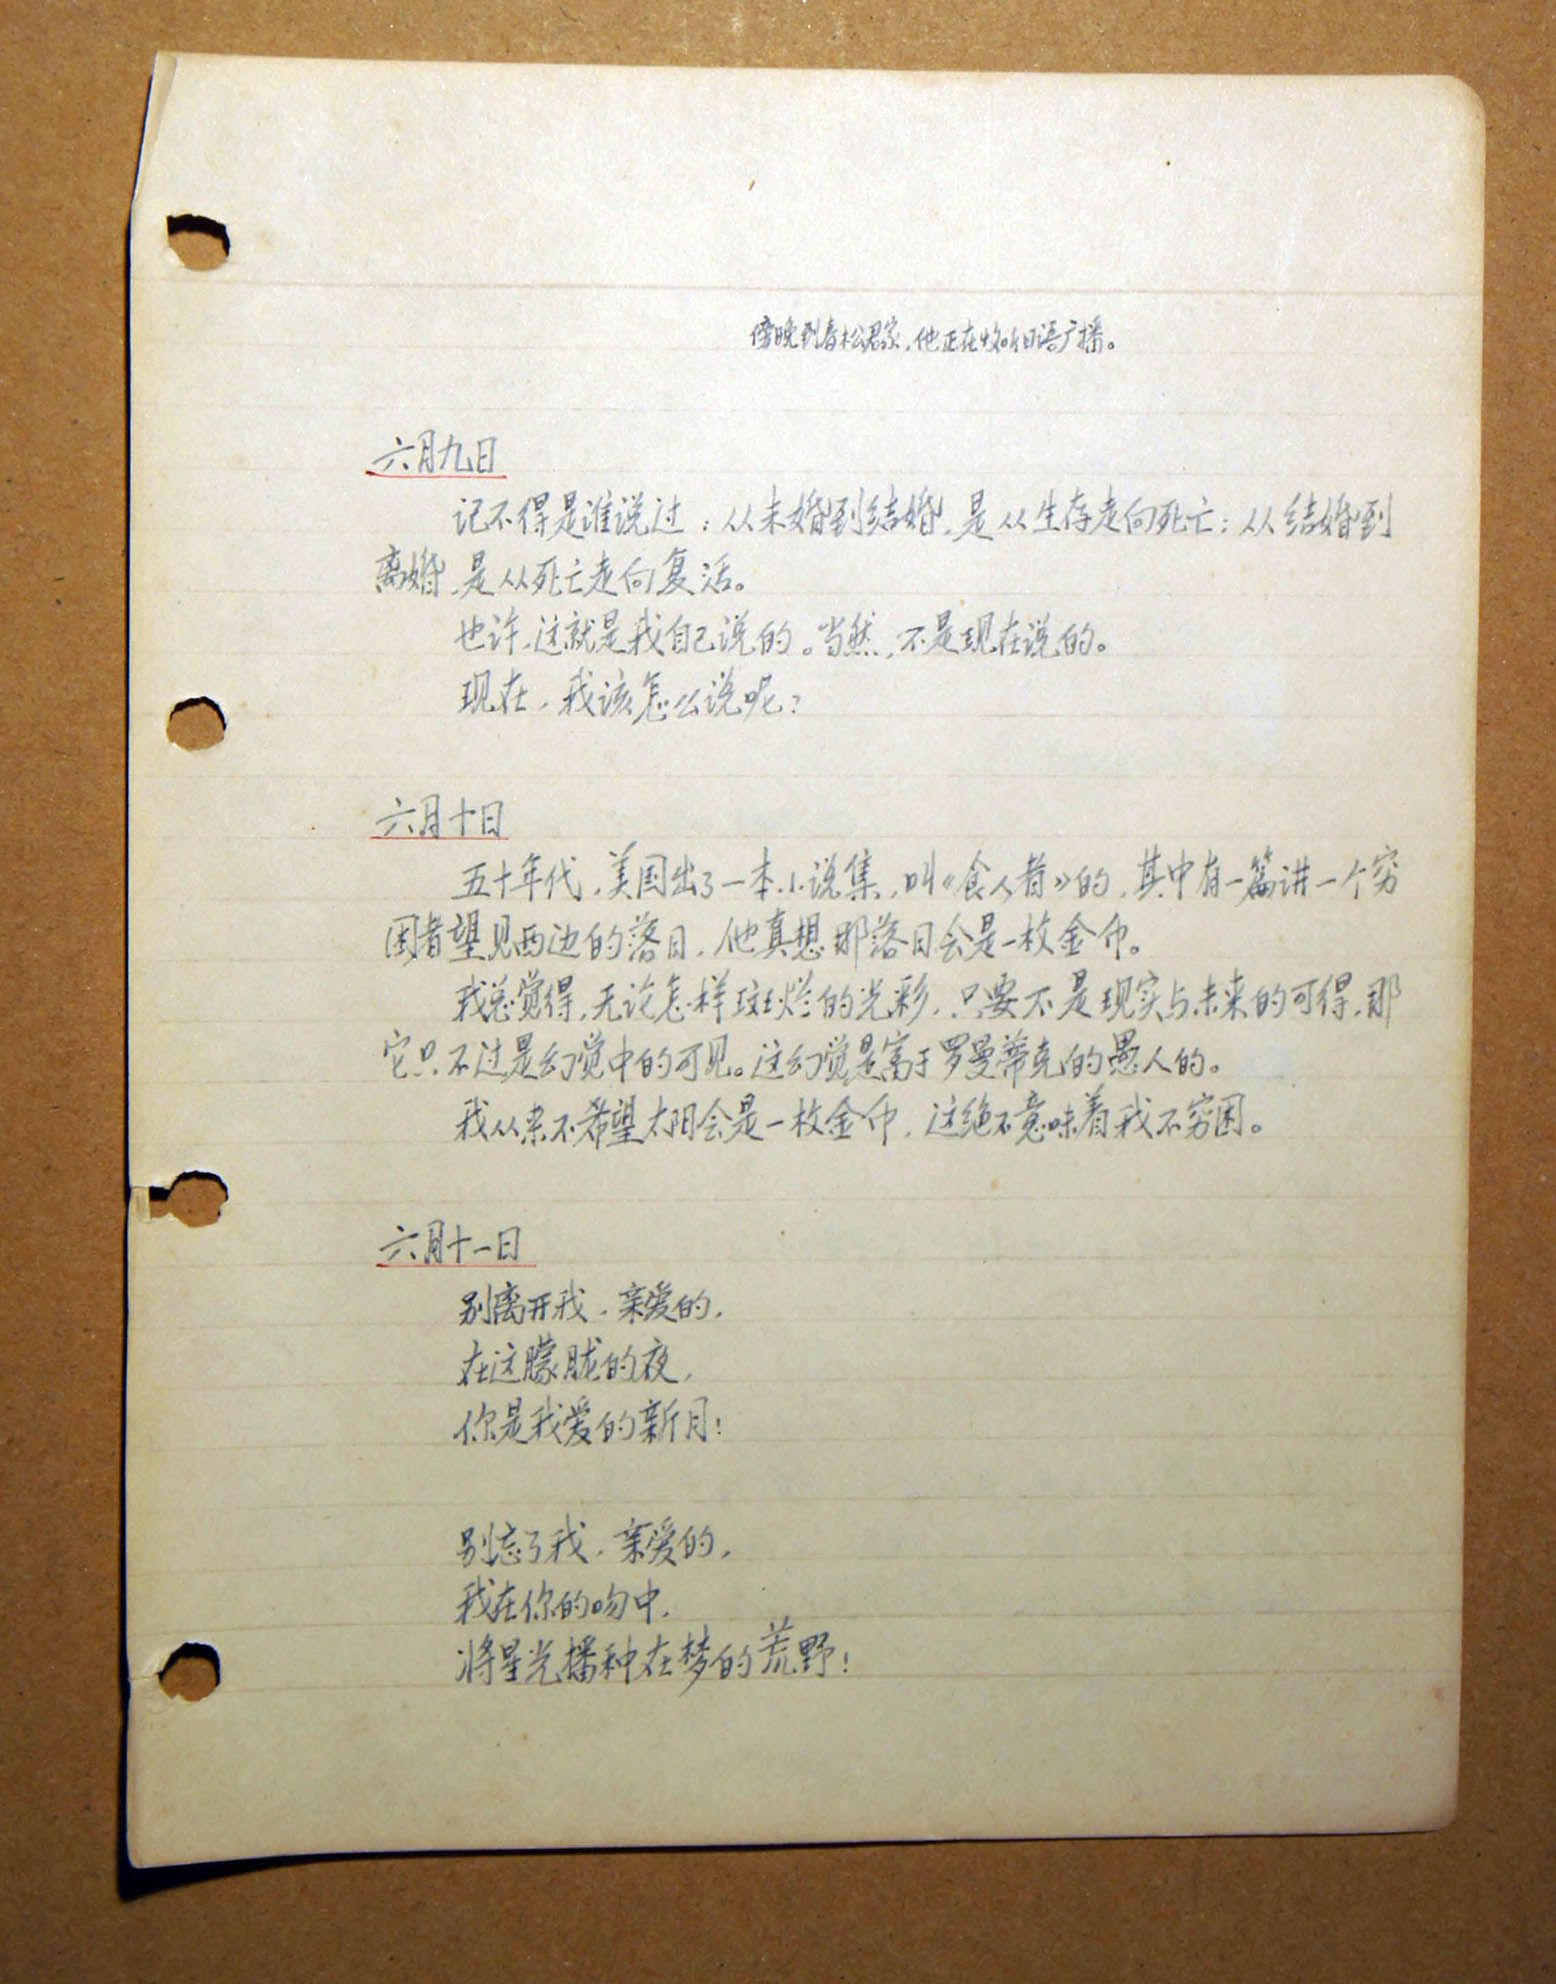 傍晚到春松君家，他正在收听日语广播。
六月九日
记不得是谁说过：从未婚到结婚，是从生存走向死亡；从结婚到
离婚，是从死亡走向复活。
也许，这就是我自己说的。当然，不是现在说的。
现在，我该怎么说呢？
六月十日
五十年代，美国出了一本小说集，叫《食人者》的，其中有一篇讲一个穷
困者望见西边的落日，他真想那落日会是一枚金币。
我总觉得，无论怎样斑烂的光彩，只要不是现实与未来的可得，那
它只不过是幻觉中的可见。这幻觉是富于罗曼蒂克的愚人的。
我从来不希望太阳会是一枚金币，这绝不意味着我不穷困。
六月十一日
别离开我，亲爱的，
在这朦胧的夜，
你是我爱的新月！
别忘了我，亲爱的，
我在你的吻中，
将星光播种在梦的荒野！